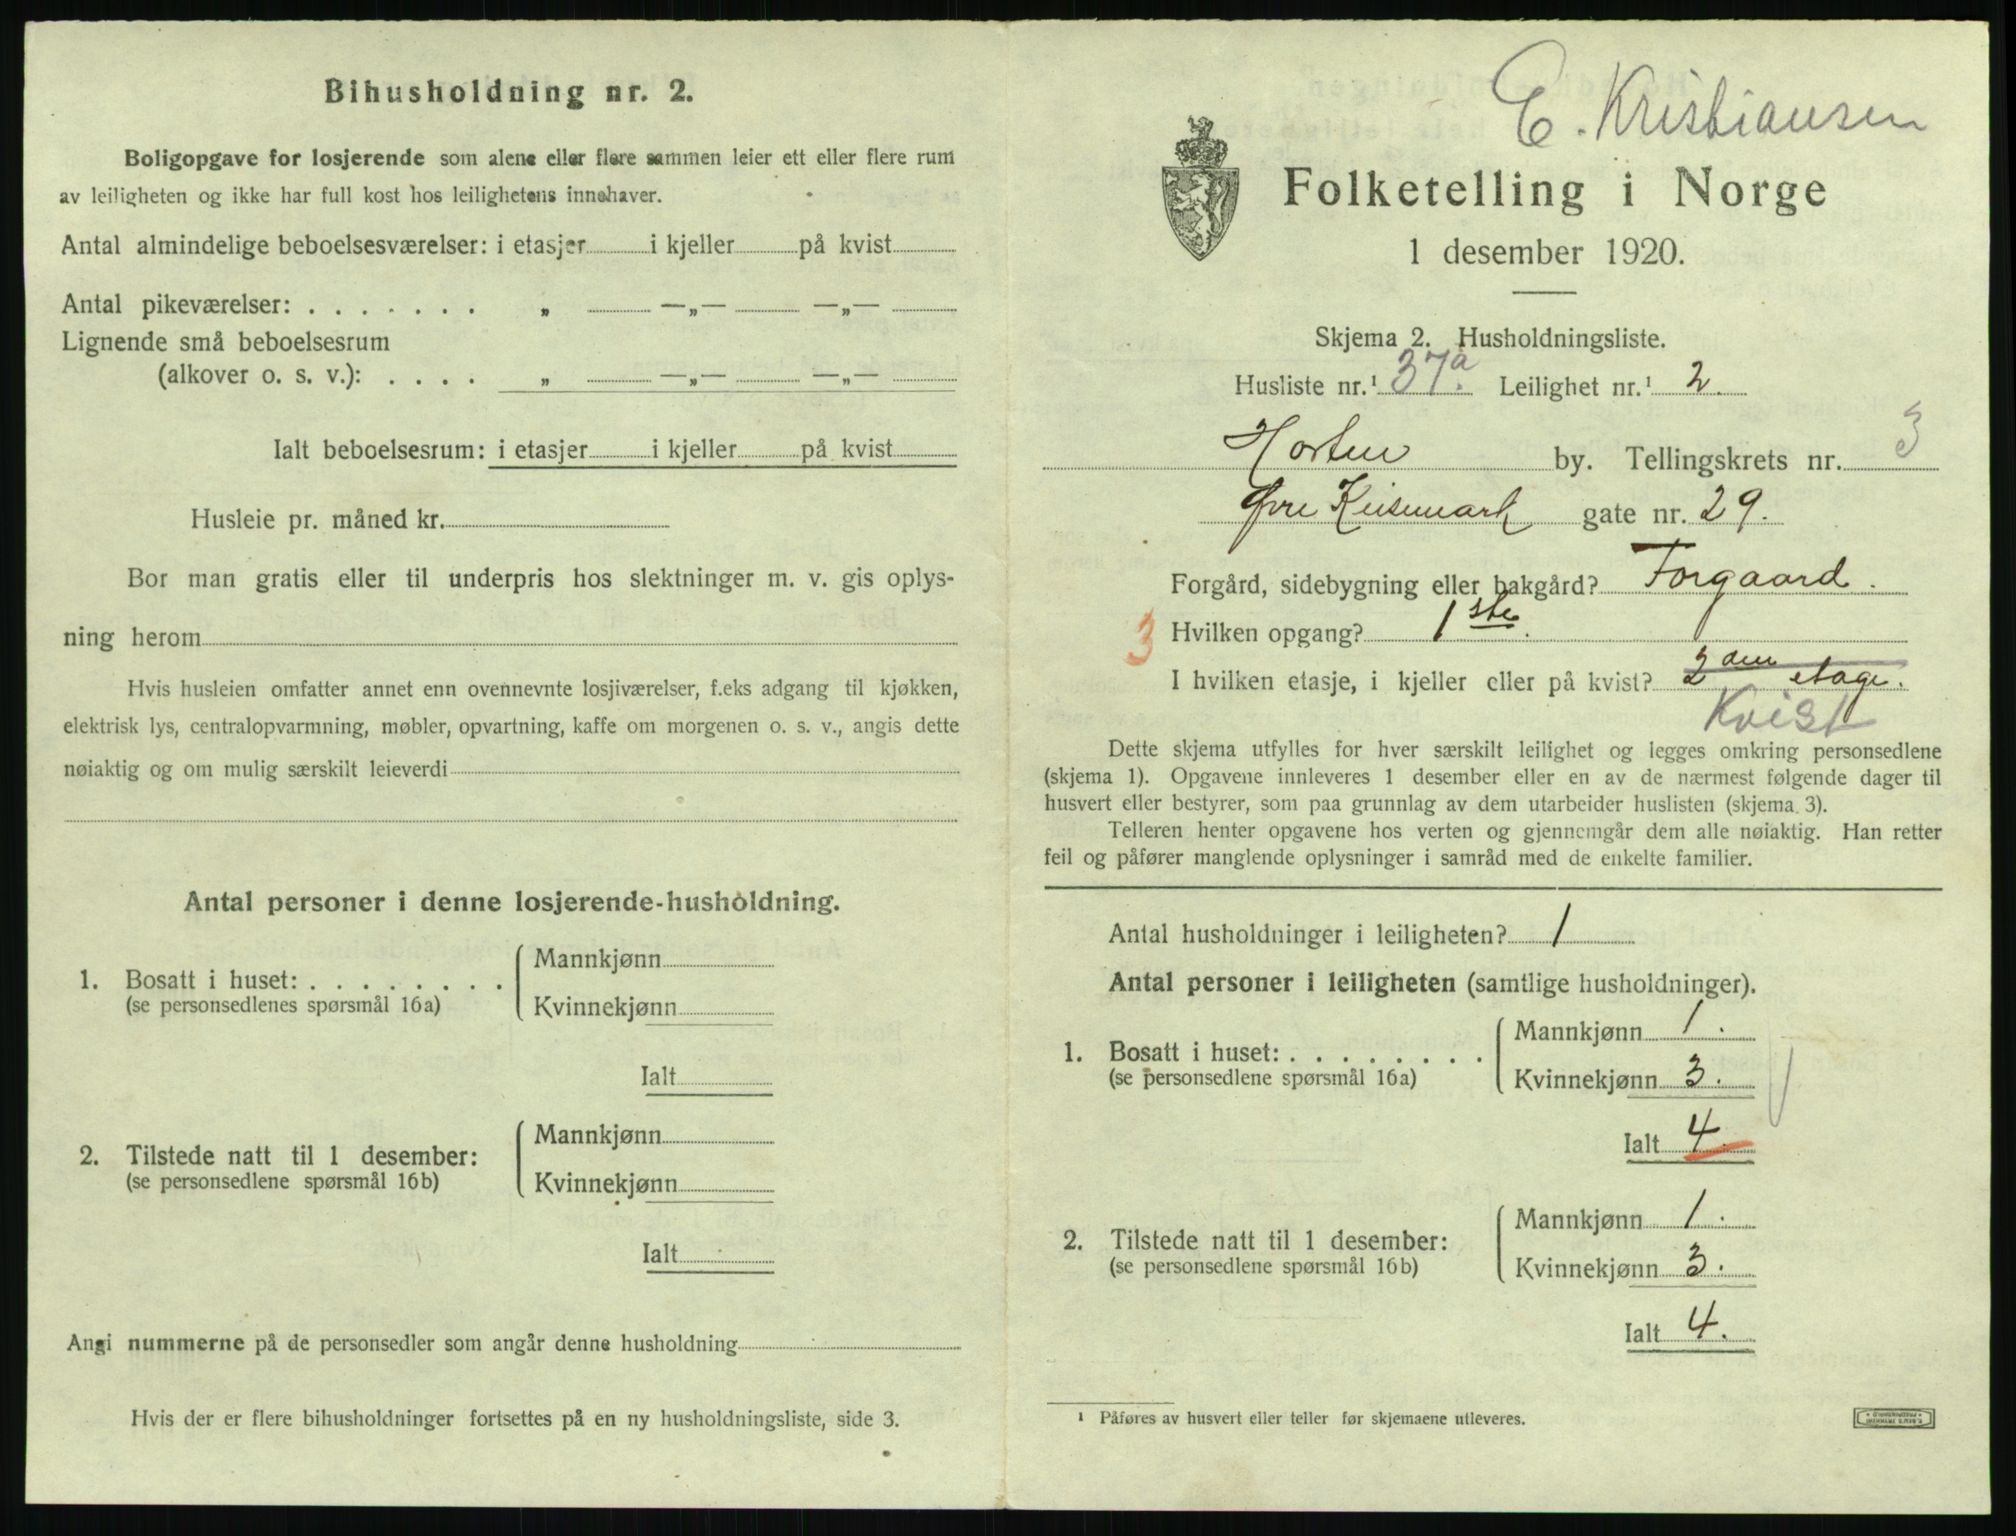 Bihusholdning nr. 2.
Boligopgave for losjerende som alene eller flere sammen leier ett eller flere rum
av leiligheten og ikke har full kost hos leilighetens innehaver.
Antal almindelige beboelsesværelser: i etasjer i kjeller på kvist
Antal pikeværelser: . . . . . . . „ —„— —„—
Lignende små beboelsesrum
(alkover o. s. v.): . . . . „ —„— —„—
Ialt beboelsesrum: i etasjer i kjeller på kvist
Husleie pr. måned kr.
Bor man gratis eller til underpris hos slektninger m. v. gis oplys-
ning herom
Hvis husleien omfatter annet enn ovennevnte losjiværelser, f.eks adgang til kjøkken,
elektrisk lys, centralopvarmning, møbler, opvartning, kaffe om morgenen o. s. v., angis dette
nøiaktig og om mulig særskilt leieverdi
Antal personer i denne losjerende-husholdning.
1. Bosatt i huset: . . . . . . . . Mannkjønn
(se personsedlenes spørsmål 16a) Kvinnekjønn
Ialt
2. Tilstede natt til 1 desember: Mannkjønn
(se personsedlene spørsmål 16b) Kvinnekjønn
Ialt
Angi nummerne på de personsedler som angår denne husholdning
Hvis der er flere bihusholdninger fortsettes på en ny husholdningsliste, side 3.
E. Kristiansen
Folketelling i Norge
1 desember 1920.
Skjema 2. Husholdningsliste.
Husliste nr.¹ 37a. Leilighet nr.¹ 2.
Horten by. Tellingskrets nr. 3
Øvre Keisemark gate nr. 29.
Forgård, sidebygning eller bakgård? Forgaard.
3 Hvilken opgang? 1ste.
I hvilken etasje, i kjeller eller på kvist? 2den etage.
Kvist
Dette skjema utfylles for hver særskilt leilighet og legges omkring personsedlene
(skjema 1). Opgavene innleveres 1 desember eller en av de nærmest følgende dager til
husvert eller bestyrer, som paa grunnlag av dem utarbeider huslisten (skjema 3).
Telleren henter opgavene hos verten og gjennemgår dem alle nøiaktig. Han retter
feil og påfører manglende oplysninger i samråd med de enkelte familier.
Antal husholdninger i leiligheten? 1
Antal personer i leiligheten (samtlige husholdninger).
1. Bosatt i huset: . . . . . . . . Mannkjønn 1.
(se personsedlene spørsmål 16a) Kvinnekjønn 3.
Ialt 4.
2. Tilstede natt til 1 desember: Mannkjønn 1.
(se personsedlene spørsmål 16b) Kvinnekjønn 3.
Ialt 4.
¹ Påføres av husvert eller teller før skjemaene utleveres.